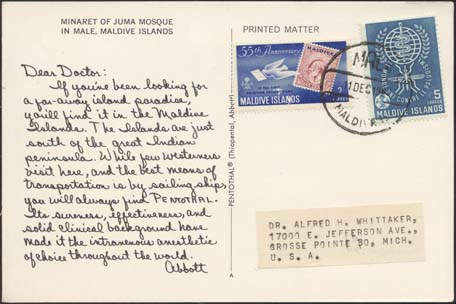 MINARET OF JUMA MOSQUE
IN MALE, MALDIVE ISLANDS
Dear Doctor:
If you've been looking for
a far-away island paradise,
you'll find it in the Maldive
Islands. The Islands are just
south of the great Indian
peninsula. While few westerners
visit here, and the best means of
transportation is by sailing ship,
you will always find PENTOTHAL.
Its sureness, effectiveness, and
solid clinical background have
made it the intravenous anesthetic
of choice throughout the world.
Abbott
PENTOTHAL® (Thiopental, Abbott)
A
PRINTED MATTER
55th Anniversary
MALDIVE ISLANDS
MALDIVE ISLANDS
5
LAREES
DEC
DR. ALFRED H. WHITTAKER,
17000 E. JEFFERSON AVE.,
GROSSE POINTE 30, MICH.
U. S. A.